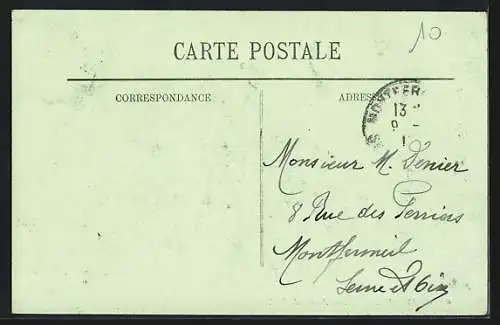 10
CARTE POSTALE
CORRESPONDANCE
ADRES
MONTFER
13
9 -
1
Monsieur M. Denier
8 Rue des Perriers
Montfermeil
Seine et Oise